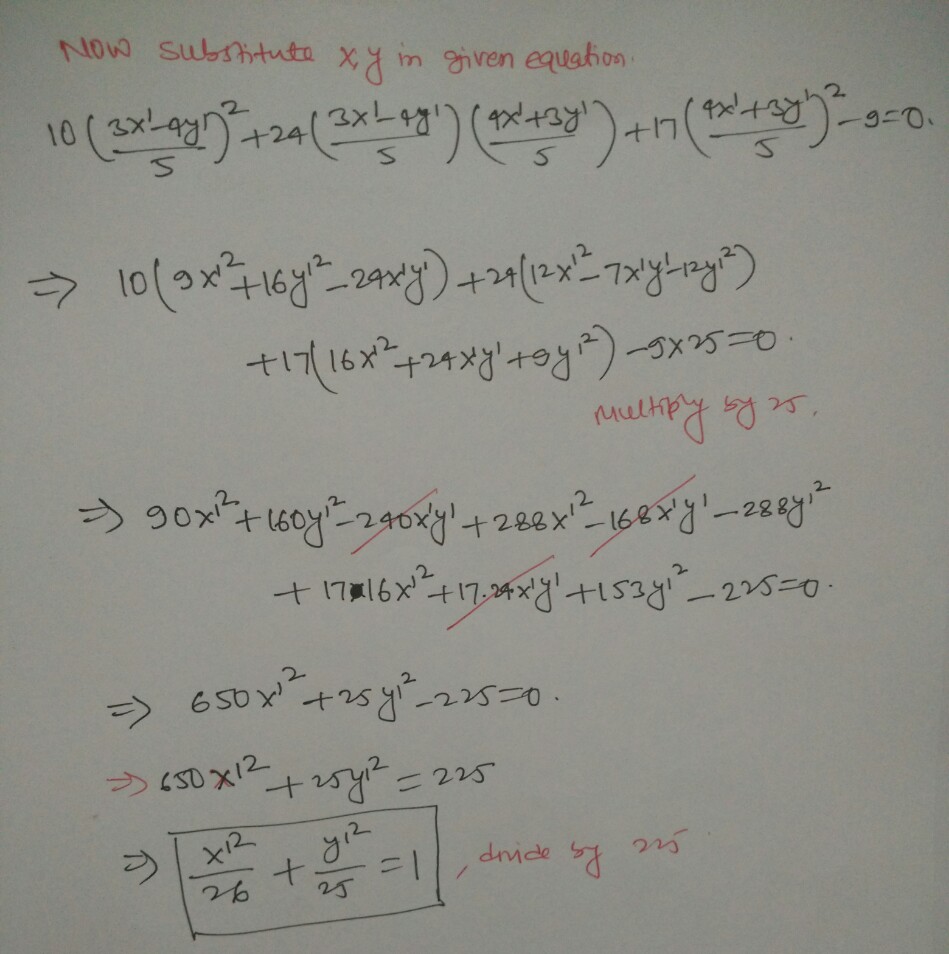 Now substitute x, y in given equation.
10((3x'-4y')/5)² + 24((3x'-4y')/5)((4x'+3y')/5) + 17((4x'+3y')/5)² - 9 = 0.
⇒ 10(9x'²+16y'²-24x'y') + 24(12x'²-7x'y'-12y'²)
+17(16x'²+24x'y'+9y'²) - 9x25 = 0.
Multiply by 25.
⇒ 90x'²+160y'²-240x'y'+288x'²-168x'y'-288y'²
+ 17·16x'²+17.24x'y'+153y'²-225=0.
⇒ 650x'²+25y'²-225=0.
⇒ 650x'²+25y'²=225
⇒ x'²/26 + y'²/25 = 1, divide by 225